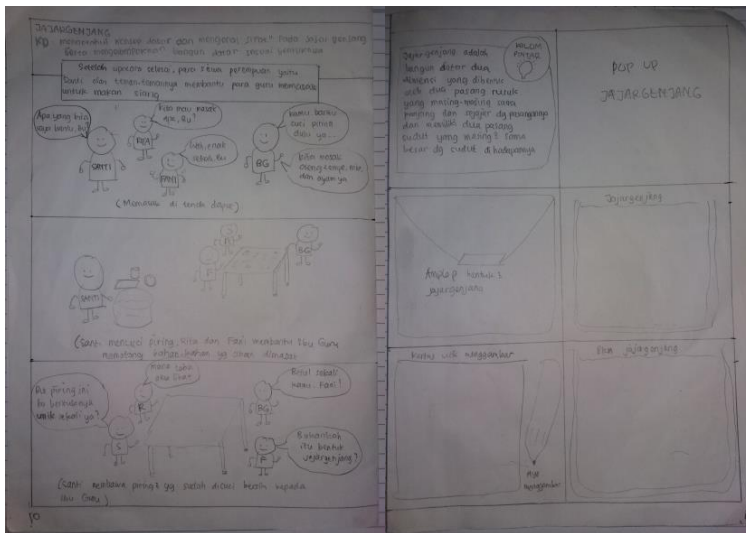 JAJARGENJANG
KD : menentukan
dan
pada jajar genjang
bangun datar
Setelah upacara selesai, para siswa perempuan yaitu
Santi dan teman-temannya membantu para guru memasak
untuk makan siang
Apa yang bisa
saya bantu, Bu
kita mau masak
apa, Bu?
kamu bantu
cuci piring
dulu ya...
kita masak
dan ayam ya
SANTI
RITA
FANI
BG
(Memasak di tenda dapur)
S
R
F
BG
SANTI
(Santi mencuci piring, Rita dan Fani membantu Ibu Guru
memotong bahan-bahan yg akan dimasak
Bu piring ini
ko bentuknya
unik sekali ya?
Betul sekali
kamu, Fani!
Bukankah
itu bentuk
jajargenjang?
S
R
BG
F
(Santi membawa piring2 yg sudah dicuci bersih kepada
Ibu Guru)
Jajargenjang adalah
bangun datar dua
dimensi yang dibentuk
oleh dua pasang rusuk
yang masing-masing sama
panjang dan sejajar dg pasangannya
dan memiliki dua pasang
sudut yang masing2 sama
besar dg sudut di hadapannya
KOLOM
PINTAR
POP UP
JAJARGENJANG
Amplop bentuk2
jajargenjang
Jajargenjang
Kertas utk menggambar
Alat
menggambar
jajargenjang